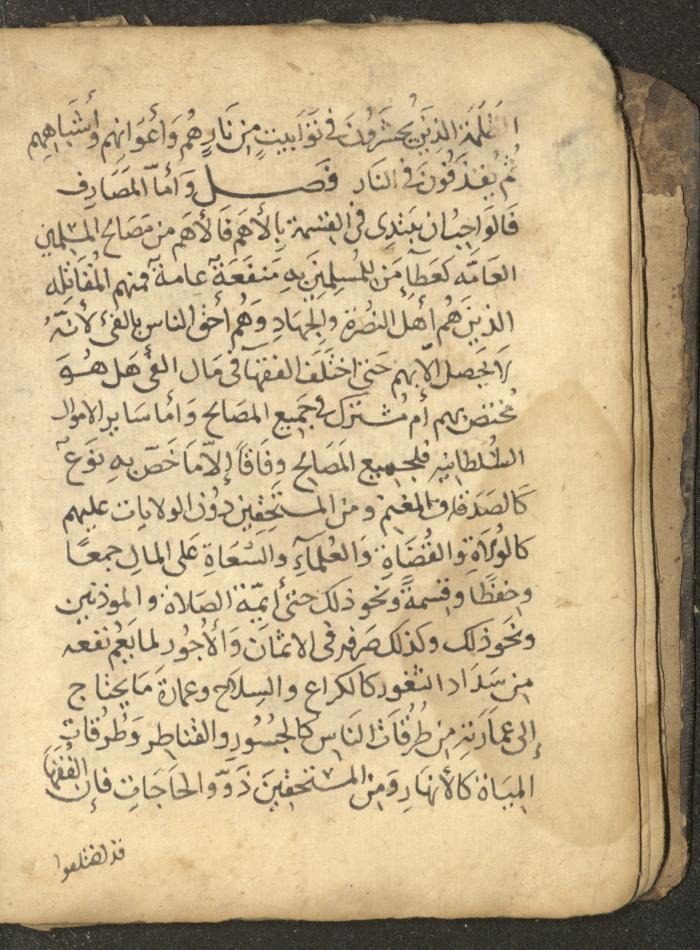 الظلمة الذين يحشرون في توابيت من نار هم وأعوانهم وأشباههم
ثم يقذفون في النار فصل وأما المصارف
فالواجب ان يبتدى في القسمة بالأهم فالأهم من مصالح المسلمين
العامة كعطاء من للمسلمين به منفعة عامة فمنهم المقاتلة
الذين هم أهل النصرة والجهاد وهم أحق الناس بالفئ لأنه
لا يحصل الا بهم حتى اختلف الفقهآ في مال الفئ هل هو
مختص بهم أم مشترك في جميع المصالح وأما ساير الاموال
السلطانيه فلجميع المصالح وفاقاً إلا ما خص به نوع
كالصدقة والمغنم ومن المستحقين ذوو الولايات عليهم
كالولاة والقضاة والعلمآء والسعاة على المال جمعًا
وحفظًا وقسمةً ونحو ذلك حتى أيمة الصلاة والموذنين
ونحو ذلك وكذلك صرفه في الاثمان والأجور لما يعم نفعه
من سداد الثغور كالكراع والسلاح وعمارة ما يحتاج
إلى عمارته من طرقات الناس كالجسور والقناطر وطرقات
المياة كالأنهار ومن المستحقين ذوو الحاجات فإن الفقها
قد اختلفوا